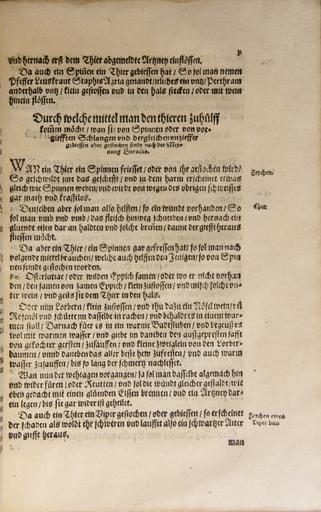 und hernach erst dem Thier abgemeldte Artzney einflössen.
Da auch ein Spinen ein Thier gebissen hat / So sol man nemen
Pfeffer Leüßkraut Staphis Agria genandt / jedliches ein untz / Perthram
anderhalb untz / klein gestossen und in den hals stecken / oder mit wein
hinein flössen.
Durch welche mittel man den thieren zuhülff
kommen möcht / wan sie von Spinnen oder von ver-
giefften Schlangen und dergleichen unzieffer
gebissen oder gestochen sindt nach der Mey-
nung Hieroclis.
WAN ein Thier ein Spinnen frisset / oder von ihr gestochen wird /
So geschwildt ime das geschefft / und in dem harm erscheinet etwas
gleich wie Spinnen weben / und wirdt von wegen des obrigen schweisses
gar math und krafftlos.
Zeychen.
Denselben aber sol man also helffen / so ein wunde vorhanden / So
sol man und umb und / das fleisch hinweg schneiden / und hernach ein
gluendt eisen dar an haldten und solche brenen / damit der giefft heraus
fliessen möcht.
Cur.
Da aber ein Thier / ein Spinnen gar gefressen hat / so sol man nach
volgende mittel brauchen / welche auch helffen den Jenigen / so von Spin
nen seindt gestochen worden.
Osterlutiae / oder wilden Eppich samen / oder wo er nicht vorhan
den / den samen von zamen Eppich / klein zustossen / und misch solchs un-
ter wein / und geuß sie dem Thier in den hals.
Oder nim Lorbern / klein zustossen / und thu dazu ein Nösel wein /
Rosenöl und schütern dasselbe in rachen / und behalde es in einem war-
men stall / Darnach füre es in ein warme Badtstuben / und begeuß es
wol mit warmen wasser / und giebe im daneben den außgepresten safft
von gekochter gersten / zusauffen / und kleine zweiglein von den Lorber-
baumen / unnd daneben das aller beste hew zufressen / und auch warm
wasser zusauffen / biß so lang der schmertz nachlesset.
Wan nun der wehtagen vorgangen / so sol man dasselbe algemach hin
und wider füren / oder Reutten / und sol die wundt gleicher gestaldt / wie
oben gedacht mit einen glüenden Eissen brennen / und ein Artzney dar-
ein legen / biß sie gar wider ist geheilet.
Da auch ein Thier ein Viper gestochen / oder gebissen / so erscheinet
der schaden als woldt ehr schwiren und lauffet also ein schwartzer Aiter
und giefft heraus.
Zeychen eines
Viper biß
man